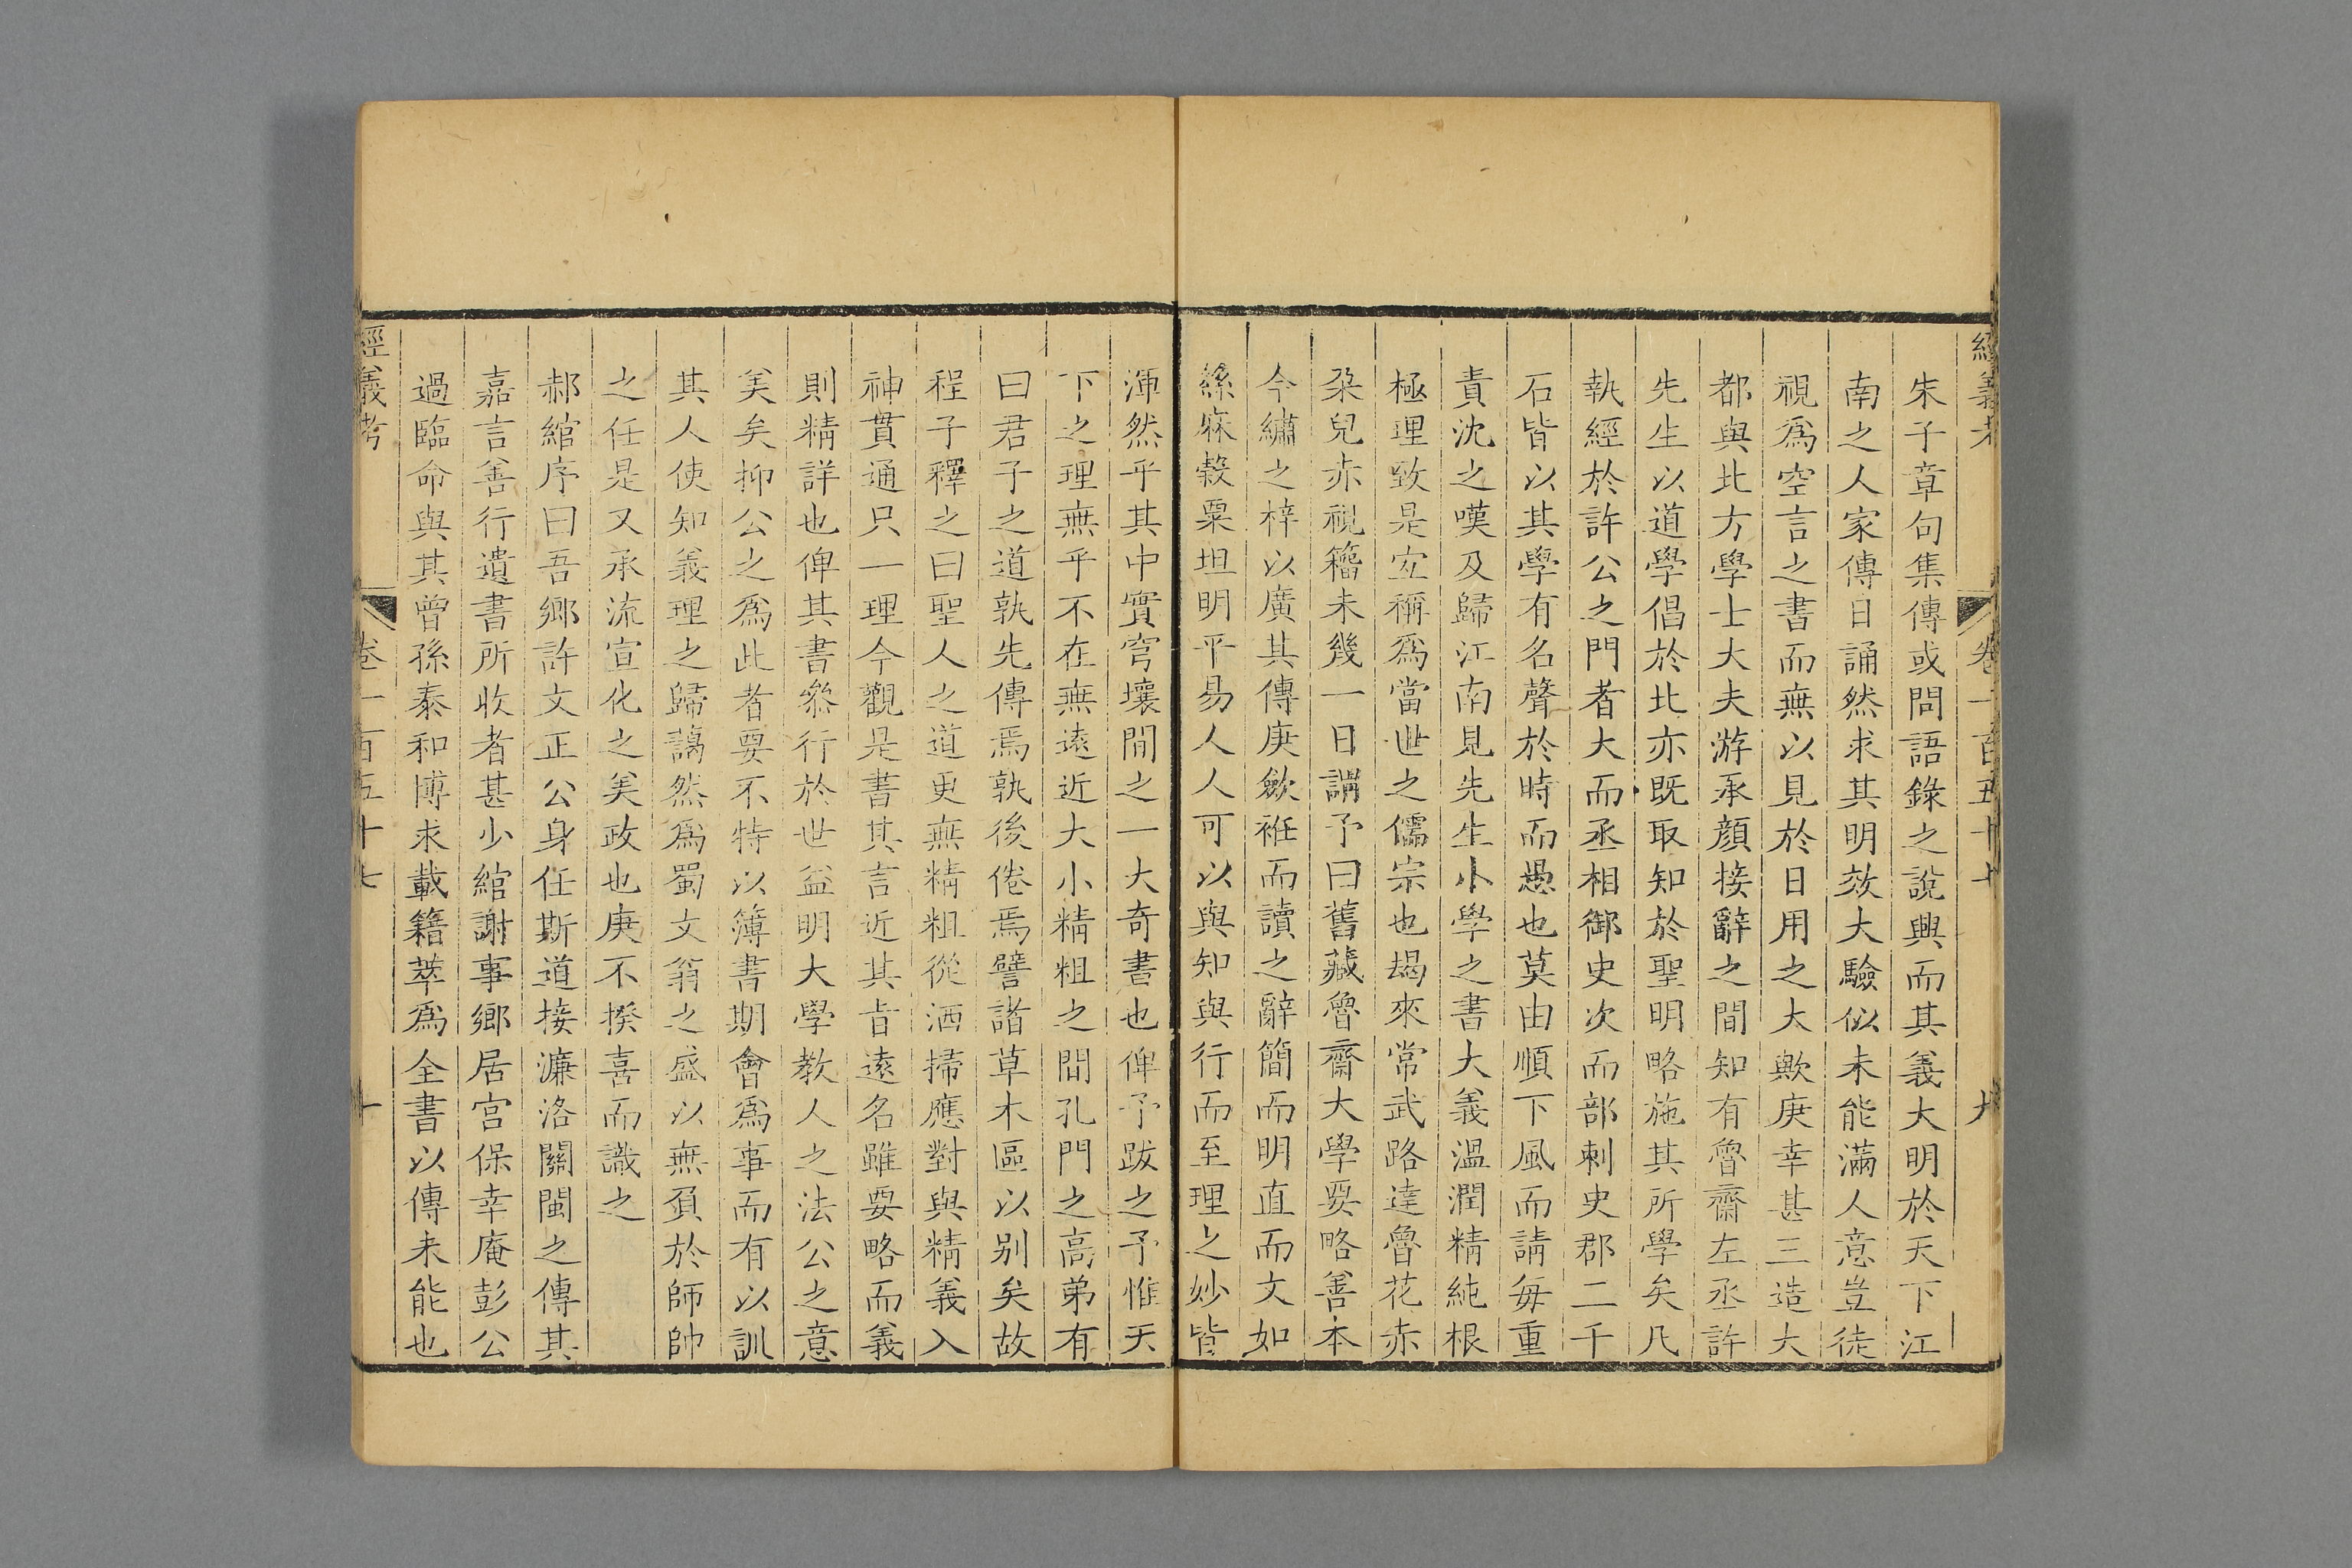 經義考 卷一百五十七 九
朱子章句集傳或問語錄之說興而其義大明於天下江
南之人家傳日誦然求其明效大驗似未能滿人意豈徒
視爲空言之書而無以見於日用之大歟庚幸甚三造大
都與北方學士大夫游承顔接辭之間知有魯齋左丞許
先生以道學倡於北亦既取知於聖明略施其所學矣凡
執經於許公之門者大而丞相御史次而部刺史郡二千
石皆以其學有名聲於時而愚也莫由順下風而請每重
責沈之嘆及歸江南見先生小學之書大義溫潤精純根
極理致是宜稱爲當世之儒宗也朅來常武路達魯花赤
朶兒赤視籒未幾一日謂予曰舊藏魯齋大學要略善本
今繡之梓以廣其傳庚斂袵而讀之辭簡而明直而文如
絲麻穀粟坦明平易人人可以與知與行而至理之妙皆
渾然乎其中實穹壤間之一大奇書也俾予跋之予惟天
下之理無乎不在無遠近大小精粗之間孔門之高弟有
曰君子之道孰先傳焉孰後倦焉譬諸草木區以别矣故
程子釋之曰聖人之道更無精粗從洒掃應對與精義入
神貫通只一理今觀是書其言近其旨遠名雖要略而義
則精詳也俾其書叅行於世益明大學教人之法公之意
美矣抑公之爲此者要不特以簿書期會爲事而有以訓
其人使知義理之歸藹然爲蜀文翁之盛以無負於師帥
之任是又承流宣化之美政也庚不揆喜而識之
郝綰序曰吾鄉許文正公身任斯道接濂洛關閩之傳其
嘉言善行遺書所收者甚少綰謝事鄉居宫保幸庵彭公
過臨命與其曾孫泰和博求載籍萃爲全書以傳未能也
經義考 卷一百五十七 十